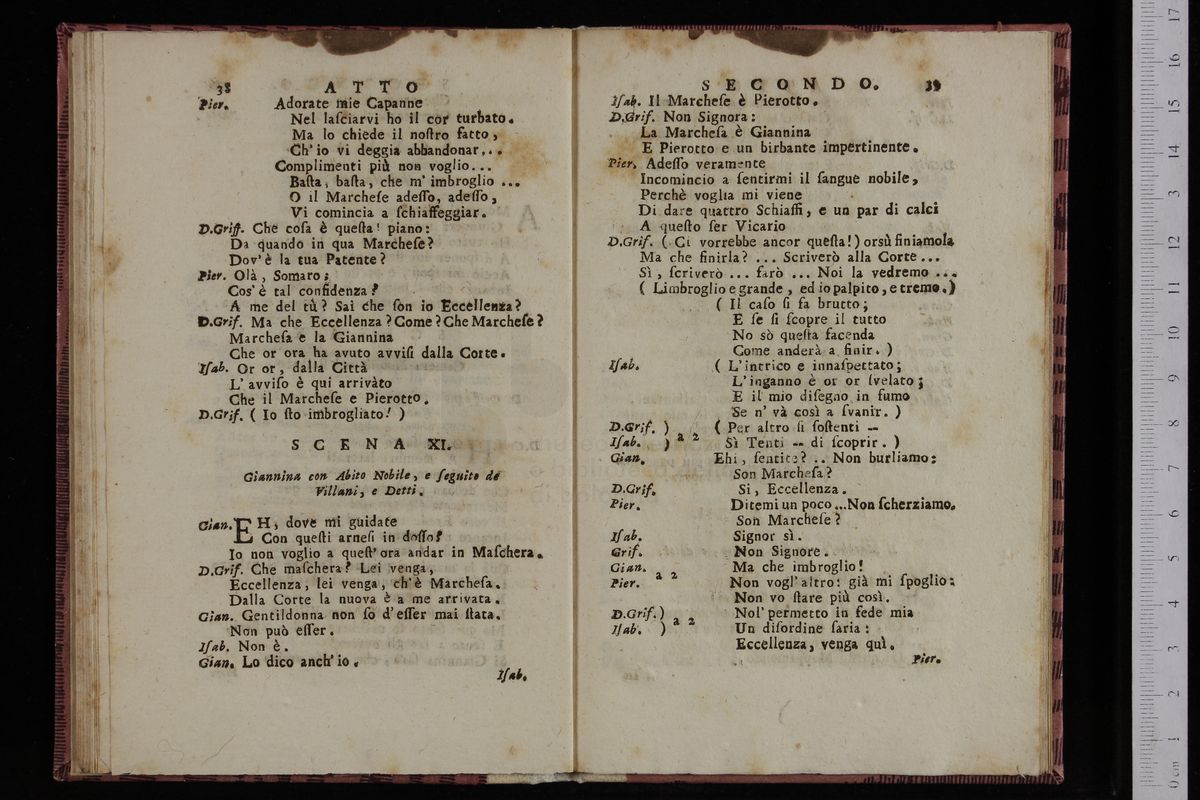 38 ATTO
Pier. Adorate mie Capanne
Nel laſciarvi ho il cor turbato.
Ma lo chiede il noſtro fatto,
Ch' io vi deggia abbandonar...
Complimenti più non voglio...
Baſta, baſta, che m' imbroglio ...
O il Marcheſe adeſſo, adeſſo,
Vi comincia a ſchiaffeggiar.
D.Griff. Che coſa è queſta! piano:
Da quando in qua Marcheſe?
Dov' è la tua Patente?
Pier. Olà, Somaro;
Cos' è tal confidenza?
A me del tù? Sai che ſon io Eccellenza?
D.Grif. Ma che Eccellenza? Come? Che Marcheſe?
Marcheſa e la Giannina
Che or ora ha avuto avviſi dalla Corte.
Iſab. Or or, dalla Città
L' avviſo è qui arrivàto
Che il Marcheſe e Pierotto.
D.Grif. ( Io ſto imbrogliato! )
SCENA XI.
Giannina con Abito Nobile, e ſeguito de
Villani, e Detti.
Gian. EH, dove mi guidate
Con queſti arneſi in doſſo?
Io non voglio a queſt' ora andar in Maſchera.
D.Grif. Che maſchera? Lei venga,
Eccellenza, lei venga, ch' è Marcheſa.
Dalla Corte la nuova è a me arrivata.
Gian. Gentildonna non ſo d' eſſer mai ſtata.
Non può eſſer.
Iſab. Non è.
Gian. Lo dico anch' io.
Iſab.
SECONDO. 39
Iſab. Il Marcheſe è Pierotto.
D.Grif. Non Signora:
La Marcheſa è Giannina
E Pierotto e un birbante impertinente.
Pier. Adeſſo veramente
Incomincio a ſentirmi il ſangue nobile,
Perchè voglia mi viene
Di dare quattro Schiaffi, e un par di calci
A queſto ſer Vicario
D.Grif. ( Ci vorrebbe ancor queſta! ) orsù finiamola
Ma che finirla? ... Scriverò alla Corte ...
Sì, ſcriverò ... farò ... Noi la vedremo ...
( Limbroglio e grande, ed io palpito, e tremo. )
( Il caſo ſi fa brutto;
E ſe ſi ſcopre il tutto
No sò queſta facenda
Come anderà a finir. )
Iſab. ( L' intrico e innaſpettato;
L' inganno è or or ſvelato;
E il mio diſegno in fumo
Se n' và così a ſvanir. )
D.Grif. ) ( Per altro ſi ſoſtenti --
Iſab. ) a 2 Sì Tenti -- di ſcoprir. )
Gian. Ehi, ſentite? .. Non burliamo:
Son Marcheſa?
D.Grif. Si, Eccellenza.
Pier. Ditemi un poco ... Non ſcherziamo.
Son Marcheſe?
Iſab. Signor sì.
Grif. Non Signore.
Gian. Ma che imbroglio!
Pier. a 2 Non vogl' altro: già mi ſpoglio:
Non vo ſtare più così.
D.Grif. ) Nol' permetto in fede mia
Iſab. ) a 2 Un diſordine ſaria:
Eccellenza, venga quì.
Pier.
17
16
15
14
13
12
11
10
9
8
7
6
5
4
3
2
1
0 cm